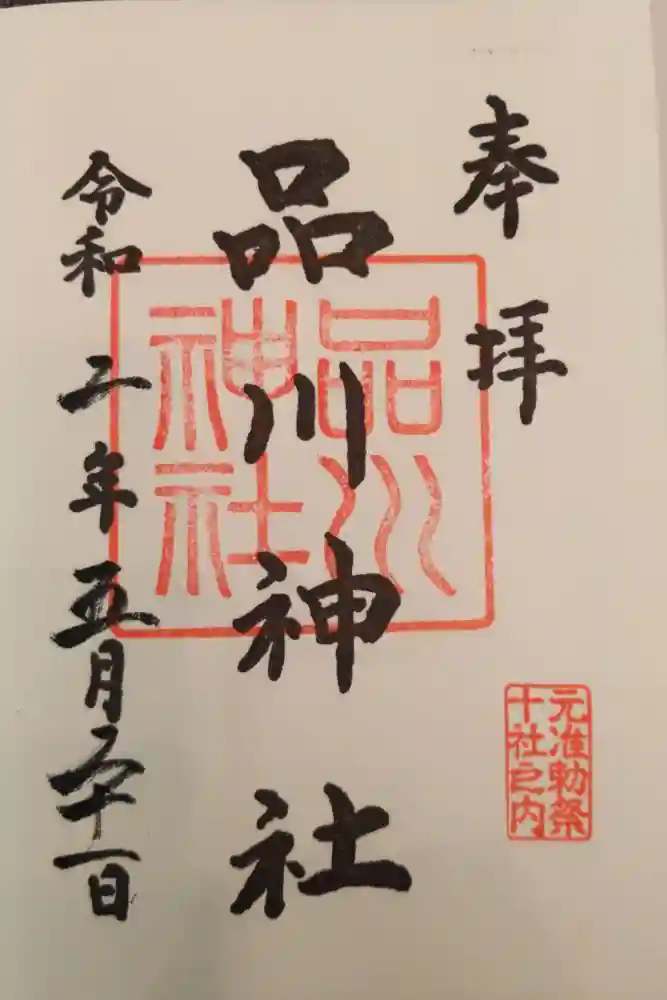 奉拝
品川神社
品川
神社
令和二年五月二十一日
元准勅祭
十社之内